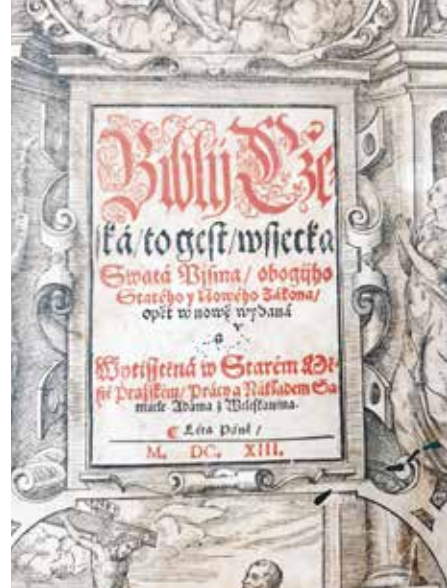 Biblij Cže-
ská/ to gest/ wssecka
Swatá Pjsma/ obogijho
Starého y Nowého Zákona/
opět w nowě wydaná
a
Wytisstěná w Starém Mě-
stě Pražském/ Prácy a Nákladem Sa-
muele Adama z Weleslawina.
Léta Páně/
M. DC. XIII.